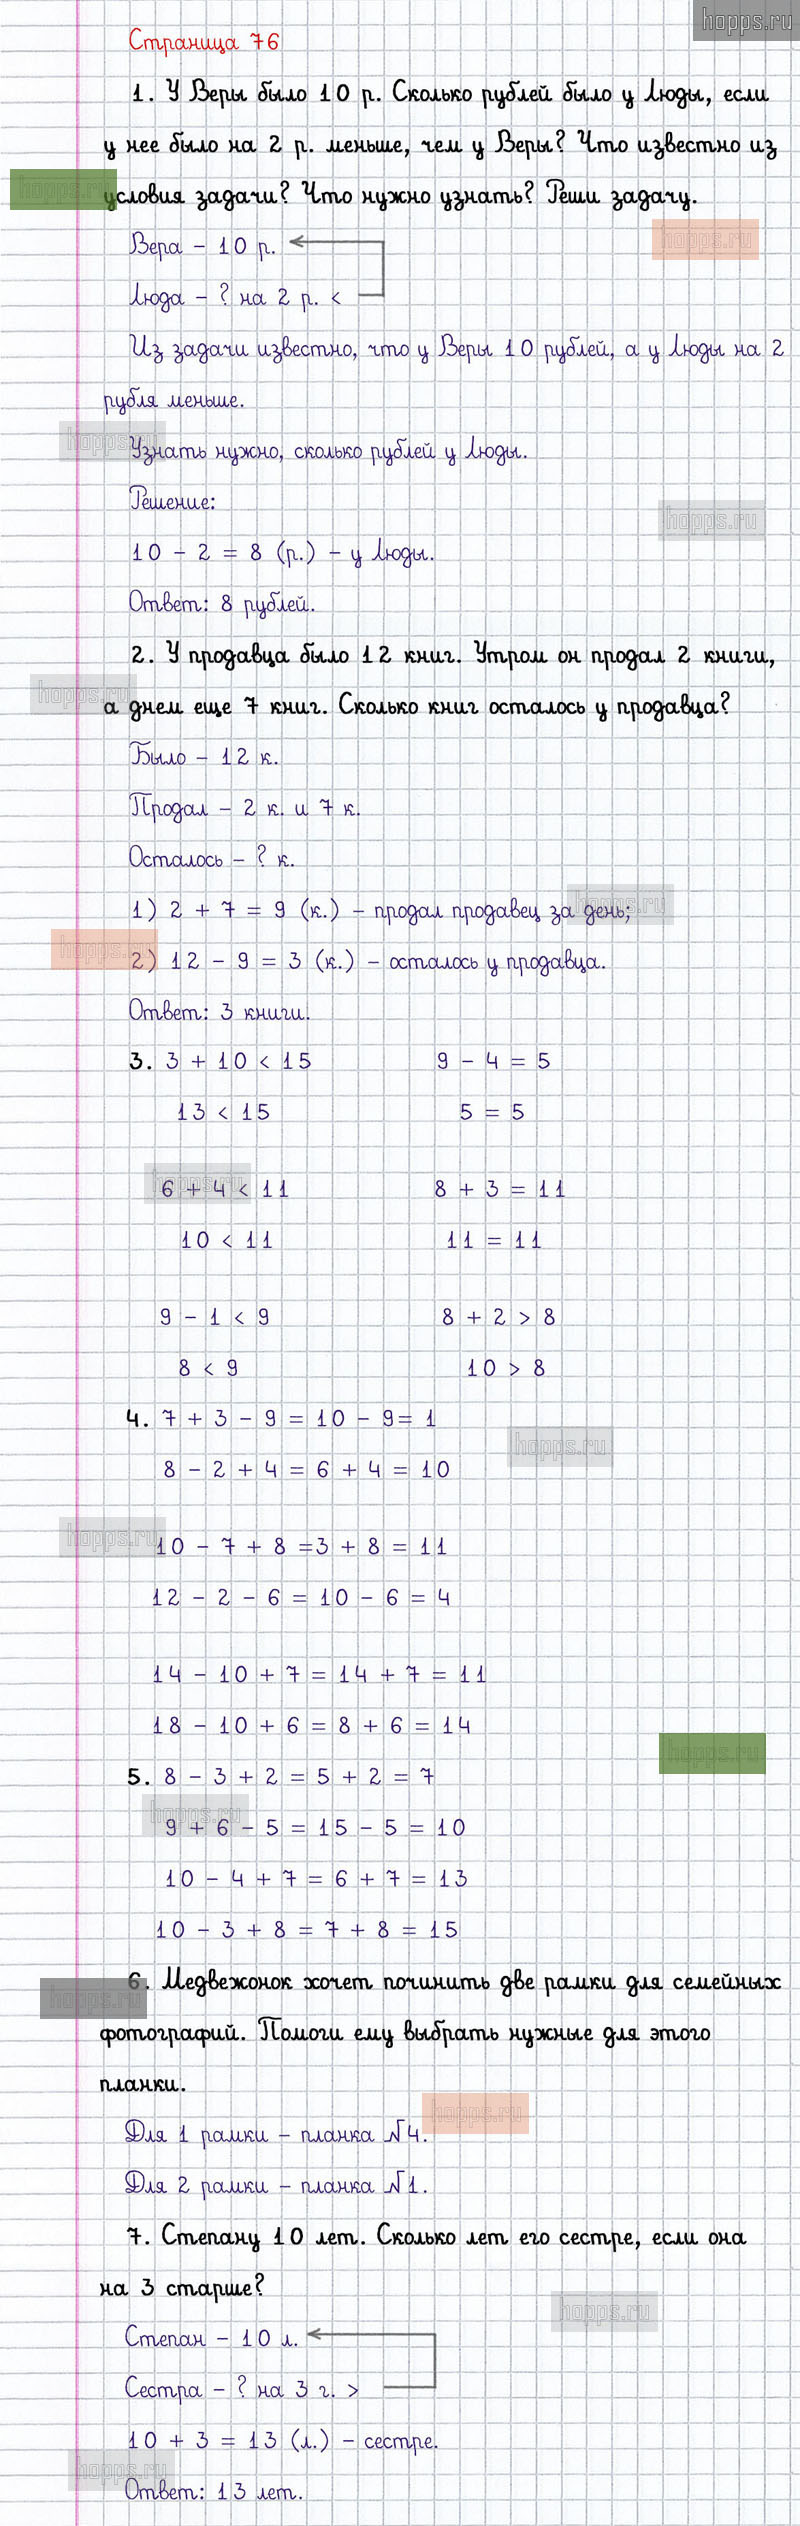 hopps.ru
Страница 76
1. У Веры было 10 р. Сколько рублей было у Люды, если
у нее было на 2 р. меньше, чем у Веры? Что известно из
hopps.ru
условия задачи? Что нужно узнать? Реши задачу.
Вера – 10 р.
hopps.ru
Люда – ? на 2 р. <
Из задачи известно, что у Веры 10 рублей, а у Люды на 2
рубля меньше.
hopps.ru
Узнать нужно, сколько рублей у Люды.
Решение:
hopps.ru
10 – 2 = 8 (р.) – у Люды.
Ответ: 8 рублей.
2. У продавца было 12 книг. Утром он продал 2 книги,
hopps.ru
а днем еще 7 книг. Сколько книг осталось у продавца?
Было – 12 к.
Продал – 2 к. и 7 к.
Осталось – ? к.
hopps.ru
1) 2 + 7 = 9 (к.) – продал продавец за день;
hopps.ru
2) 12 – 9 = 3 (к.) – осталось у продавца.
Ответ: 3 книги.
3. 3 + 10 < 15 9 – 4 = 5
13 < 15 5 = 5
hopps.ru
6 + 4 < 11 8 + 3 = 11
10 < 11 11 = 11
9 – 1 < 9 8 + 2 > 8
8 < 9 10 > 8
4. 7 + 3 – 9 = 10 – 9= 1
hopps.ru
8 – 2 + 4 = 6 + 4 = 10
hopps.ru
10 – 7 + 8 =3 + 8 = 11
12 – 2 – 6 = 10 – 6 = 4
14 – 10 + 7 = 14 + 7 = 11
18 – 10 + 6 = 8 + 6 = 14
hopps.ru
5. 8 – 3 + 2 = 5 + 2 = 7
hopps.ru
9 + 6 – 5 = 15 – 5 = 10
10 – 4 + 7 = 6 + 7 = 13
10 – 3 + 8 = 7 + 8 = 15
6. Медвежонок хочет починить две рамки для семейных
hopps.ru
фотографий. Помоги ему выбрать нужные для этого
планки.
hopps.ru
Для 1 рамки – планка №4.
Для 2 рамки – планка №1.
7. Степану 10 лет. Сколько лет его сестре, если она
на 3 старше?
hopps.ru
Степан – 10 л.
Сестра – ? на 3 г. >
10 + 3 = 13 (л.) – сестре.
hopps.ru
Ответ: 13 лет.